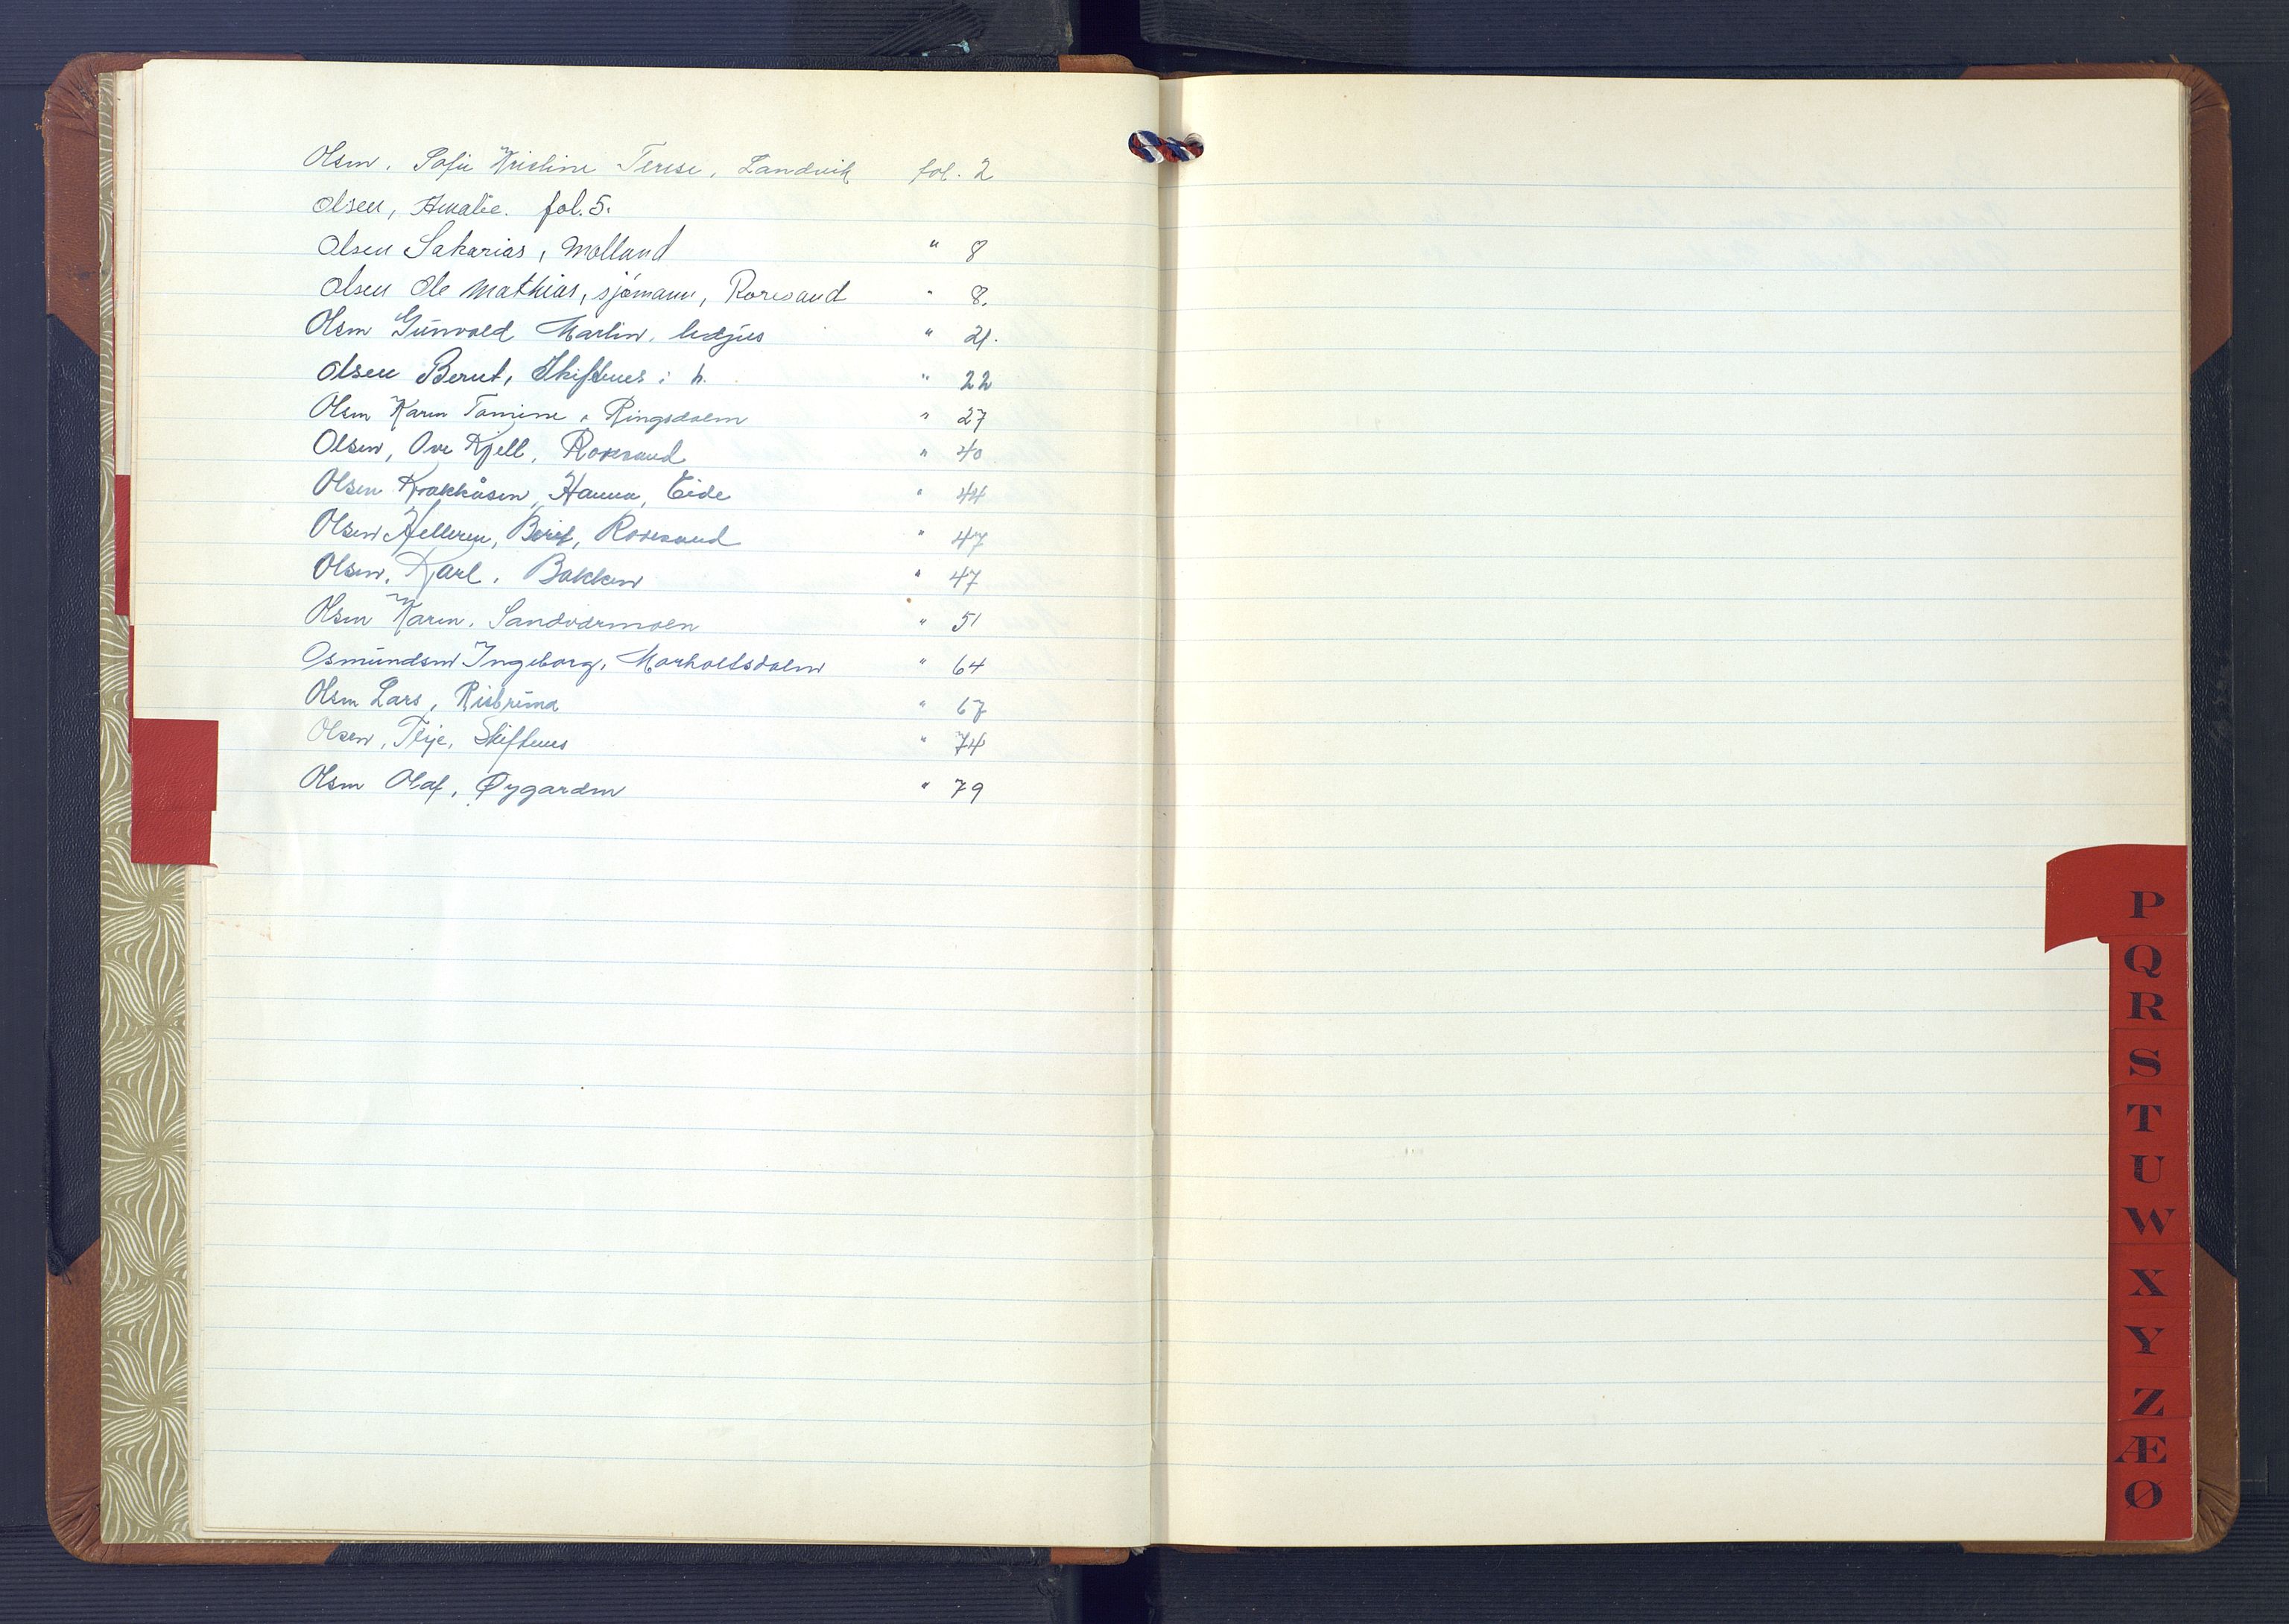 Olsen, Sofie Kristine Terese, Landvik fol. 2
Olsen, Amalie. fol. 5.
Olsen Sakarias, Molland " 8
Olsen Ole Mathias, sjømann, Roresand " 8.
Olsen Gunvald Martin, " 21.
Olsen Bernt, Skiftenes i h. " 22
Olsen Karen Tomine, Ringsdalen " 27
Olsen, Ove Kjell, Roresand " 40
Olsen Krokkåsen, Hanna, Eide " 44
Olsen Helleren, Berit, Roresand " 47
Olsen, Karl, Bakken " 47
Olsen Karen, Sandværmoen " 51
Osmundsen Ingeborg, Morholtsdalen " 64
Olsen Lars, Risbruna " 67
Olsen, Terje, Skiftenes " 74
Olsen Olaf, Øygarden " 79
P
Q
R
S
T
U
W
X
Y
Z
Æ
Ø